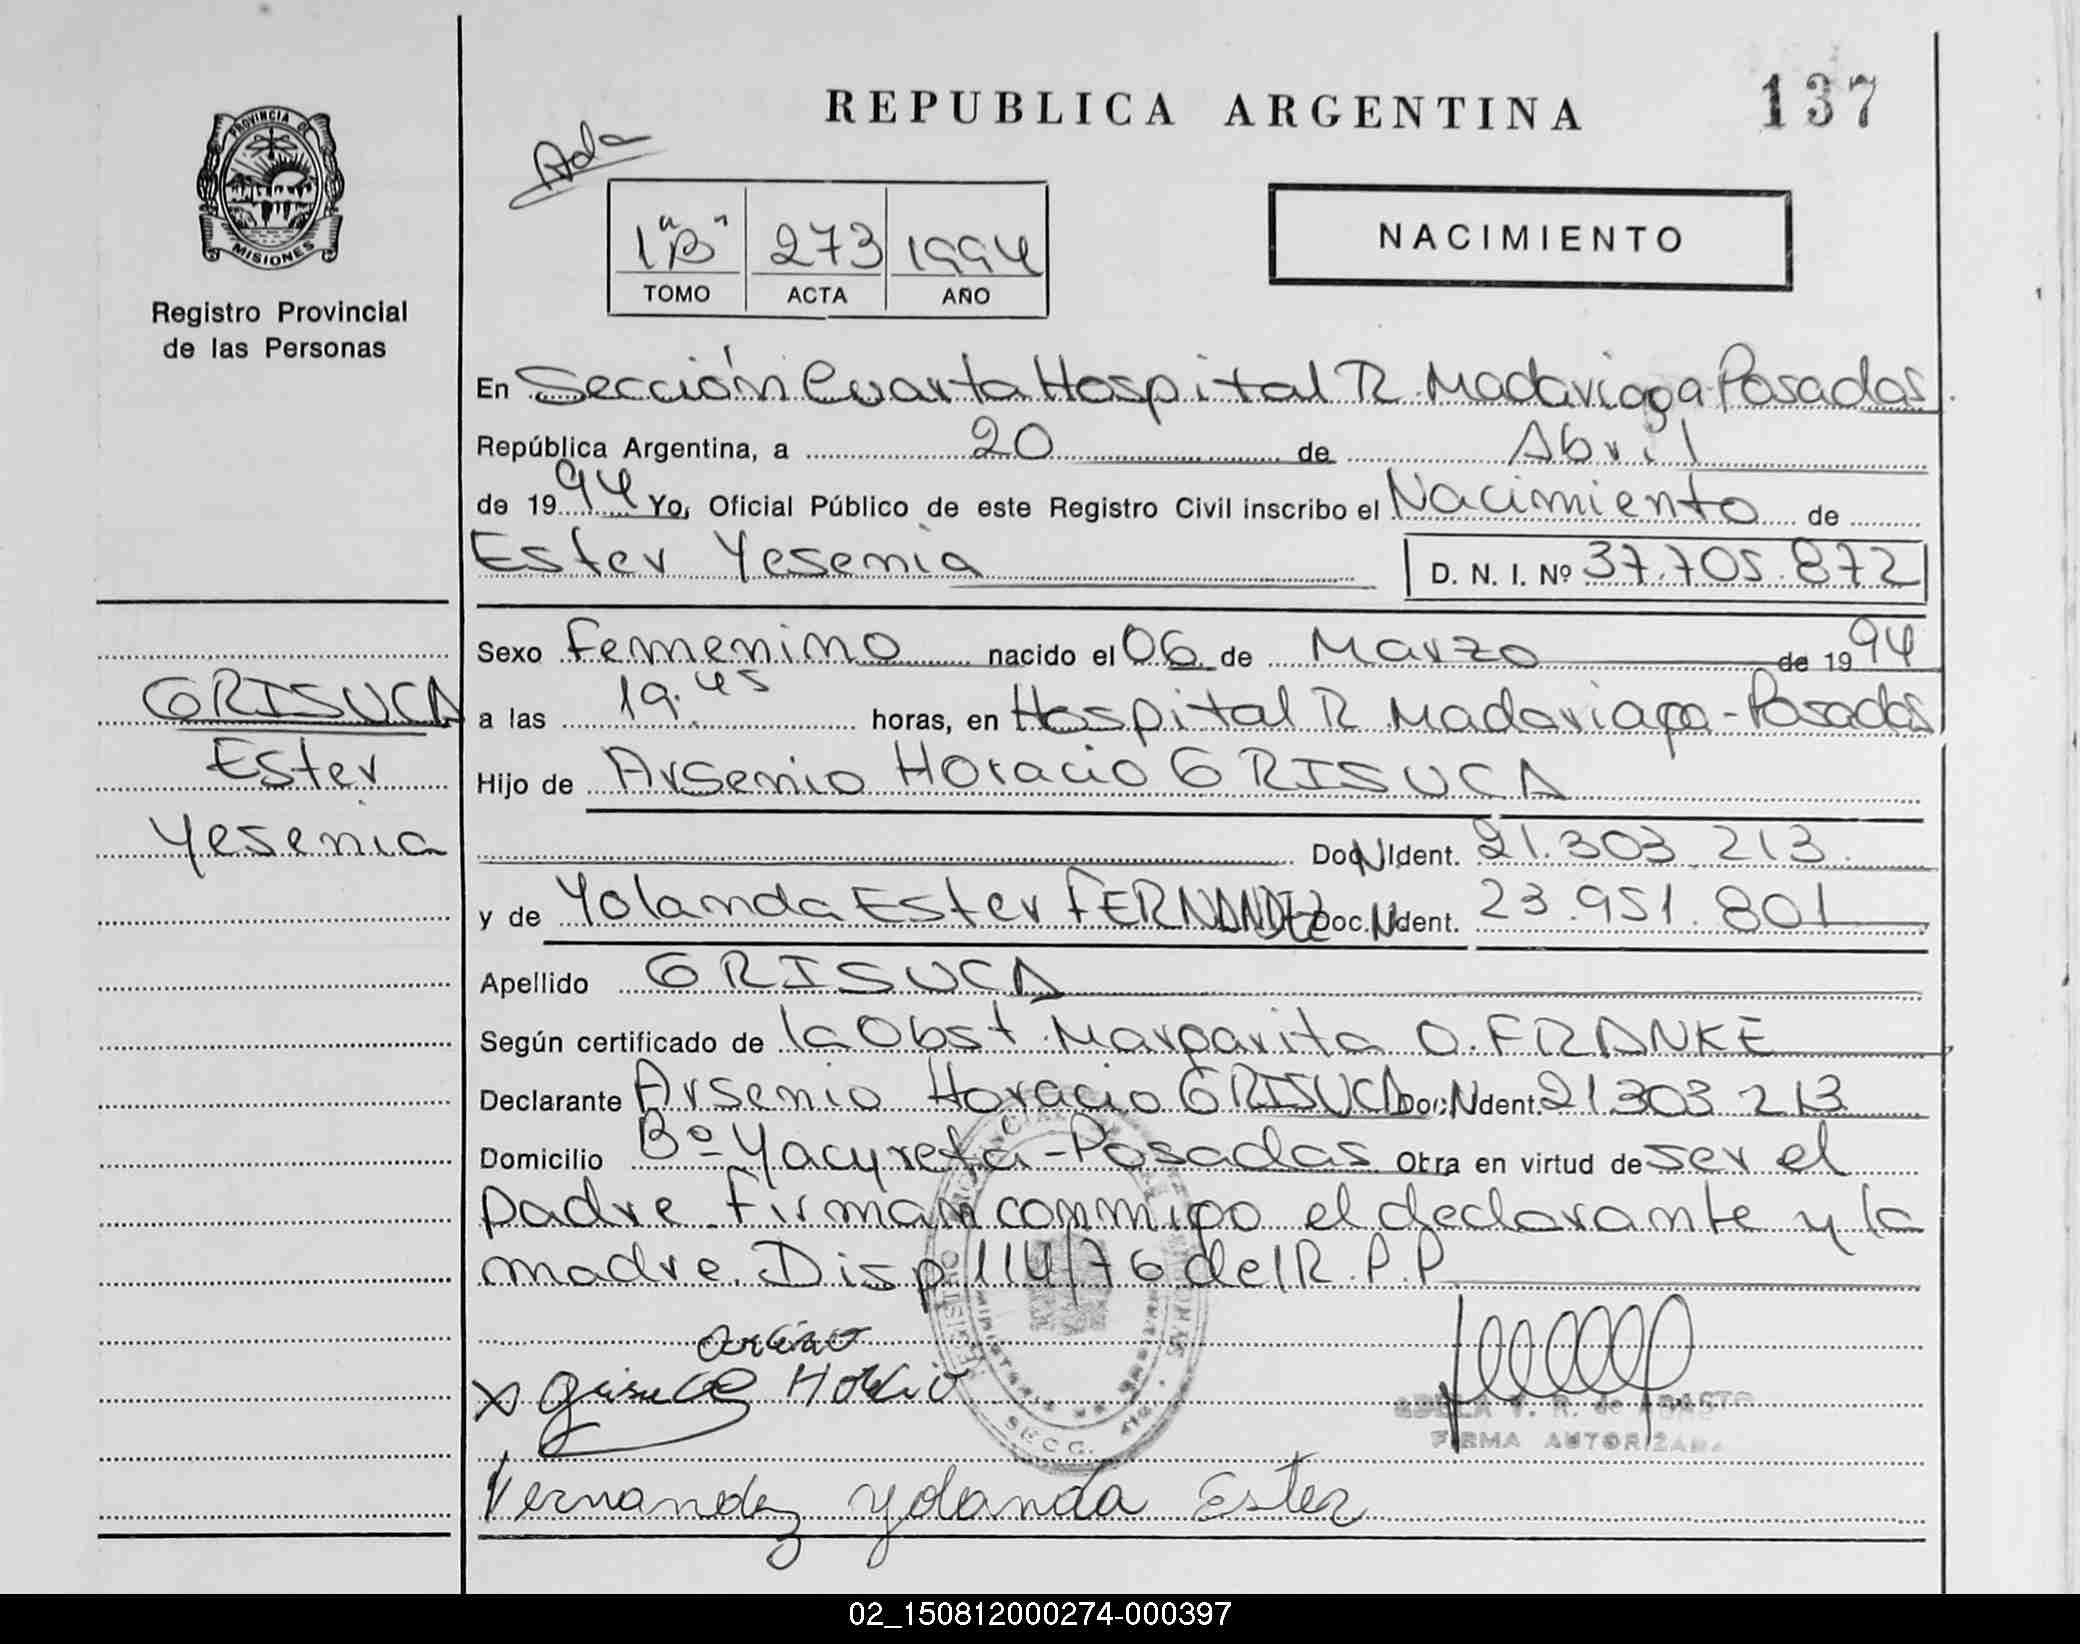 REPUBLICA ARGENTINA
137
PROVINCIA DE
MISIONES
Registro Provincial
de las Personas
Ada
1"B" 273 1994
TOMO ACTA AÑO
NACIMIENTO
En Sección Cuarta Hospital R. Madariaga-Posadas
República Argentina, a 20 de Abril
de 1994 Yo, Oficial Público de este Registro Civil inscribo el Nacimiento de
Ester Yesenia D. N. I. Nº 37.705.872
Sexo femenino nacido el 06 de Marzo de 1994
GRISUCA
Ester
Yesenia
a las 19.45 horas, en Hospital R. Madariaga-Posadas
Hijo de Arsenio Horacio GRISUCA
Doc. N Ident. 21.303.213.
y de Yolanda Ester FERNANDEZ Doc. N Ident. 23.951.801
Apellido GRISUCA
Según certificado de la Obst. Margarita O. FRANKE
Declarante Arsenio Horacio GRISUCA Doc. N Ident. 21.303.213
Domicilio Bº Yacyreta-Posadas Otra en virtud de ser el
padre. Firman conmigo el declarante y la
madre. Disp 114/76 del R.P.P.
x Grisuca Horacio
FIRMA AUTORIZADA
SECC.
Fernandez Yolanda Ester
02_150812000274-000397